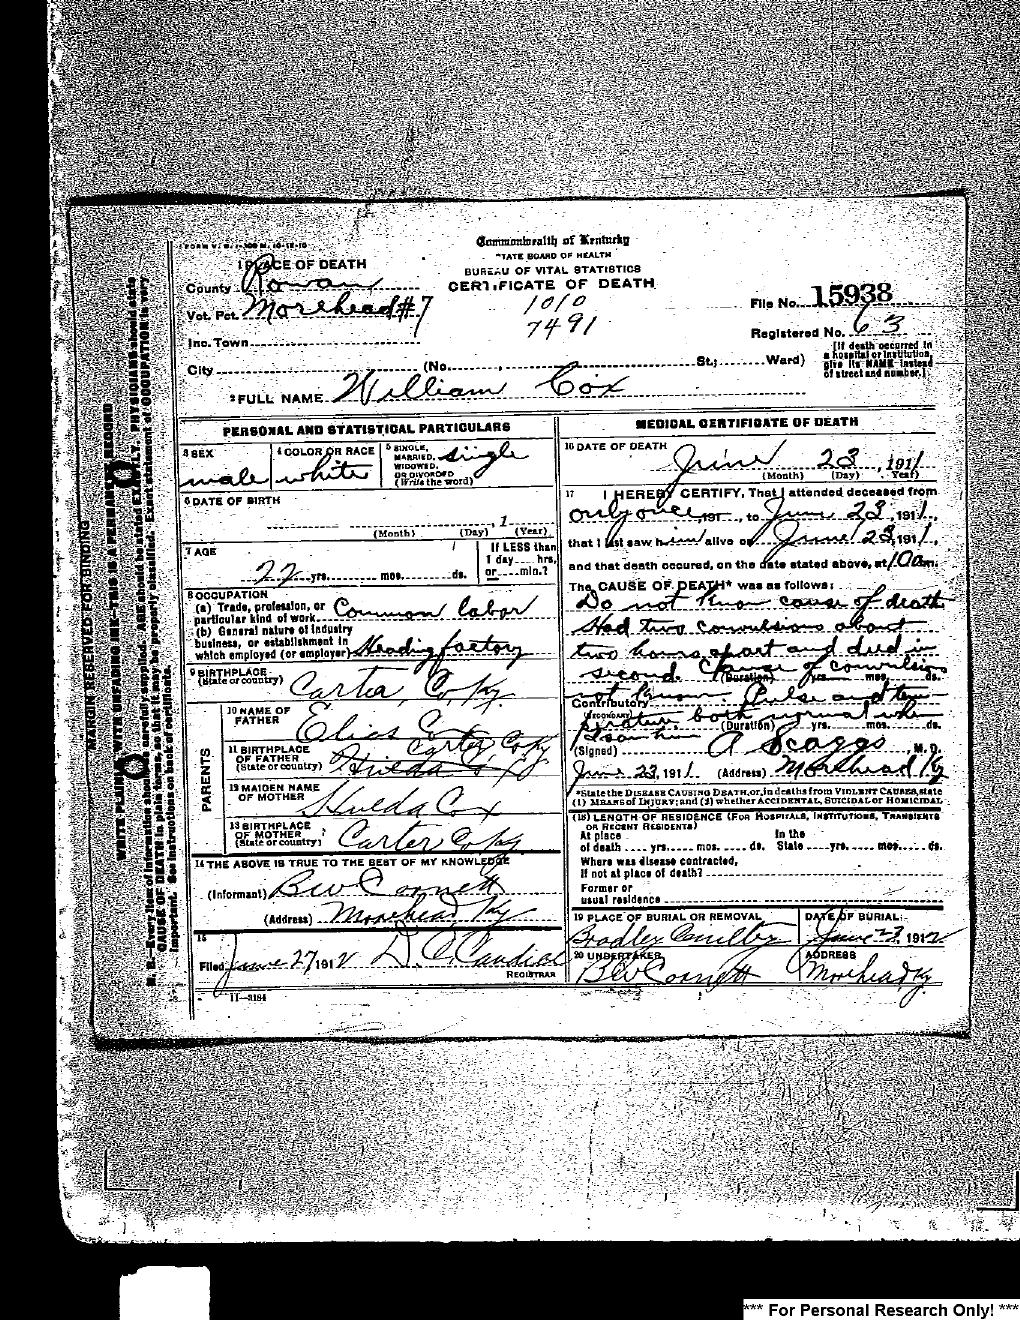 FORM V. S. 1-300 M. 10-12-10
Commonwealth of Kentucky
STATE BOARD OF HEALTH
BUREAU OF VITAL STATISTICS
CERTIFICATE OF DEATH
1 PLACE OF DEATH
County Rowan
Vot. Pct. Morehead #7
1010
7491
File No. 15938
Registered No. 63
Inc. Town
City (No. , St.; Ward)
[If death occurred in a hospital or institution, give its NAME instead of street and number.]
2 FULL NAME William Cox
PERSONAL AND STATISTICAL PARTICULARS
3 SEX male
4 COLOR OR RACE white
5 SINGLE, MARRIED, WIDOWED, OR DIVORCED (Write the word) single
6 DATE OF BIRTH
, 1
(Month) (Day) (Year)
7 AGE
22 yrs. mos. ds.
If LESS than 1 day hrs. or min.?
8 OCCUPATION
(a) Trade, profession, or particular kind of work. Common labor
(b) General nature of industry business, or establishment in which employed (or employer) Heading factory
9 BIRTHPLACE
(State or country) Carter Co Ky.
PARENTS
10 NAME OF FATHER Elias Cox
11 BIRTHPLACE OF FATHER (State or country) Carter Co Ky
12 MAIDEN NAME OF MOTHER Hulda Cox
13 BIRTHPLACE OF MOTHER (State or country) Carter Co Ky
14 THE ABOVE IS TRUE TO THE BEST OF MY KNOWLEDGE
(Informant) BW Cornett
(Address) Morehead Ky
15
Filed June 27 1912 D. C. Caudill
REGISTRAR
11-3184
MEDICAL CERTIFICATE OF DEATH
16 DATE OF DEATH
June 23, 1911
(Month) (Day) (Year)
17 I HEREBY CERTIFY, That I attended deceased from
only once, 191 , to June 23, 1911,
that I last saw him alive on June 23, 1911,
and that death occured, on the date stated above, at 10 am.
The CAUSE OF DEATH* was as follows:
Do not Know cause of death
Had two convulsions about
two hours apart and died in
second. Cause of convulsion
(Duration) yrs. mos. ds.
not Known. Pulse and tem
Contributory
(SECONDARY)
perature both normal when
(Duration) yrs. mos. ds.
I saw him
(Signed) A Scaggs, M. D.
June 23, 1911 (Address) Morehead Ky
*State the DISEASE CAUSING DEATH, or, in deaths from VIOLENT CAUSES, state (1) MEANS OF INJURY; and (2) whether ACCIDENTAL, SUICIDAL or HOMICIDAL
(18) LENGTH OF RESIDENCE (FOR HOSPITALS, INSTITUTIONS, TRANSIENTS OR RECENT RESIDENTS)
At place of death yrs. mos. ds. In the State yrs. mos. ds.
Where was disease contracted,
If not at place of death?
Former or
usual residence
19 PLACE OF BURIAL OR REMOVAL
Bradley
DATE OF BURIAL
June 23, 1912
20 UNDERTAKER
BW Cornett
ADDRESS
Morehead Ky.
MARGIN RESERVED FOR BINDING
WRITE PLAINLY, WITH UNFADING INK—THIS IS A PERMANENT RECORD
N. B.—Every item of information should be carefully supplied. AGE should be stated EXACTLY. PHYSICIANS should state
CAUSE OF DEATH in plain terms, so that it may be properly classified. Exact statement of OCCUPATION is very
important. See instructions on back of certificate.
*** For Personal Research Only! ***